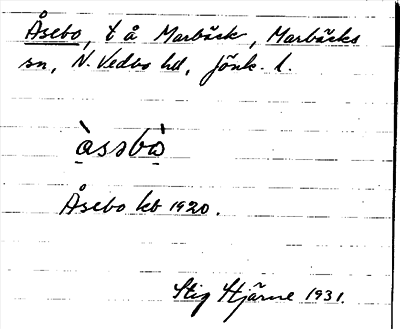 Åsebo, t å Marbäck, Marbäcks
sn, N. Vedbo hd, Jönk. l.
àssbò
Åsebo kb 1920.
Stig Hjärne 1931.